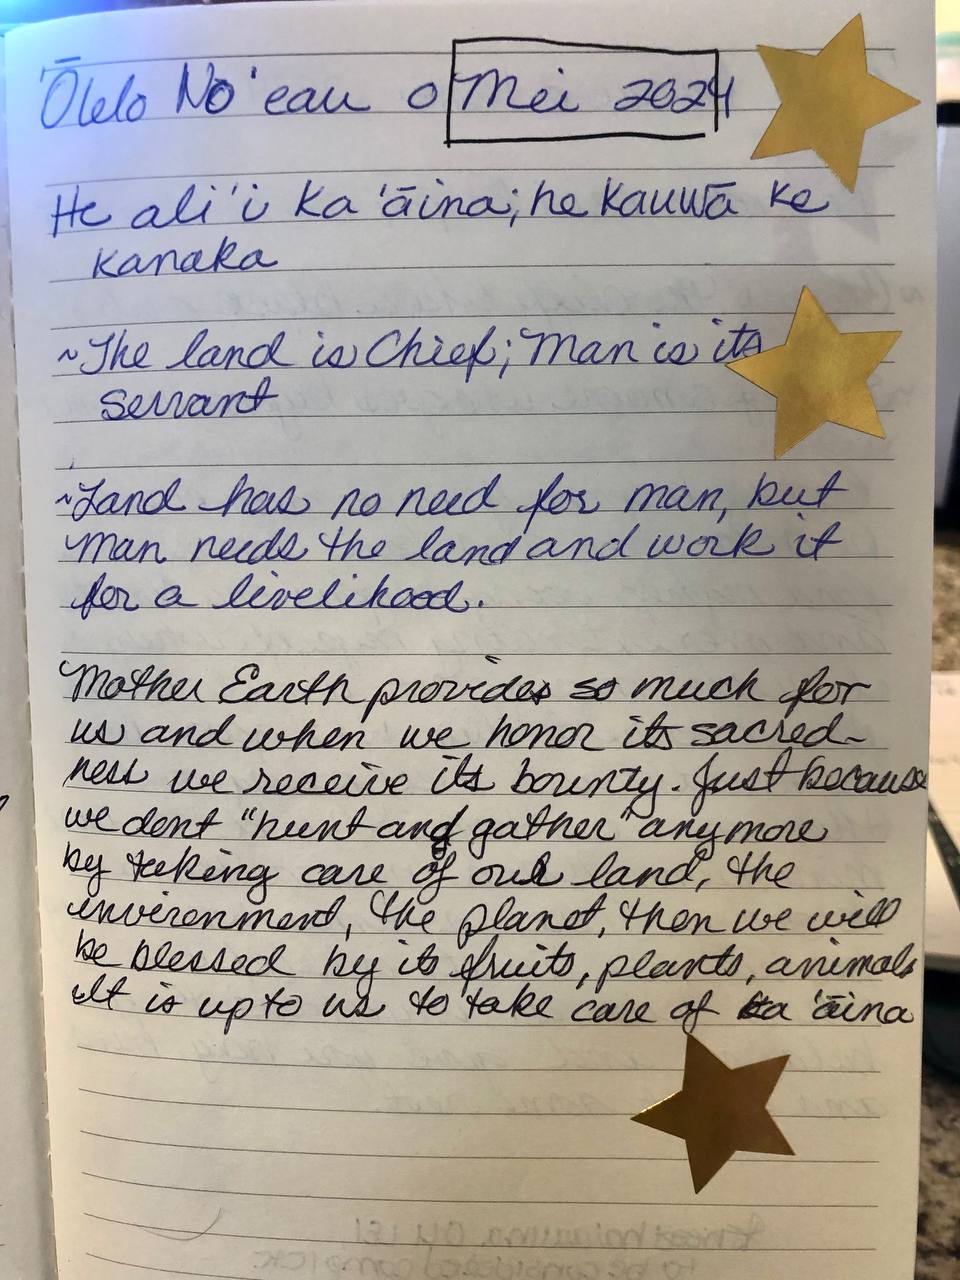 'Ōlelo No'eau o Mei 2024
He ali'i ka 'āina; he kauwā ke
kanaka
~The land is Chief; Man is its
servant
~Land has no need for man, but
man needs the land and work it
for a livelihood.
Mother Earth provides so much for
us and when we honor its sacred-
ness we receive its bounty. Just because
we dont "hunt and gather" anymore
by taking care of our land, the
environment, the planet, then we will
be blessed by its fruits, plants, animals
It is up to us to take care of ka 'āina